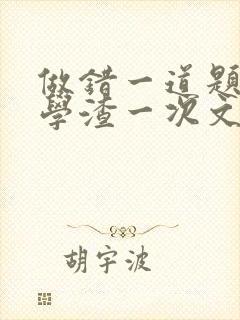 做錯一道題
學渣一次文
胡宇波